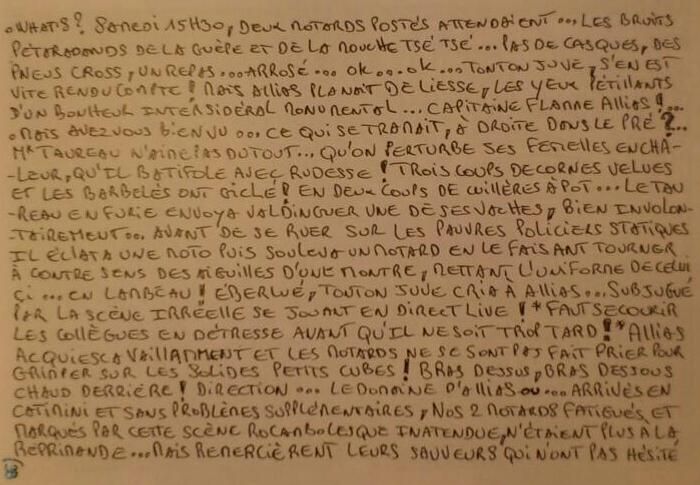 . WHATS? SAMEDI 15H30, DEUX MOTARDS POSTÉS ATTENDAIENT... LES BRUITS
PÉTARADANDS DE LA GUÊPE ET DE LA MOUCHE TSÉ TSÉ... PAS DE CASQUES, DES
PNEUS CROSS, UN REPAS... ARROSÉ... OK... OK... TONTON JUVE, S'EN EST
VITE RENDU COMPTE! MAIS ALLIAS PLANAIT DE LIESSE, LES YEUX PÉTILLANTS
D'UN BONHEUR INTERSIDÉRAL MONUMENTAL... CAPITAINE FLAMME ALLIAS!...
. MAIS AVEZ VOUS BIEN VU... CE QUI SE TRAMAIT, À DROITE DANS LE PRÉ?...
MR TAUREAU N'AIME PAS DU TOUT... QU'ON PERTURBE SES FEMELLES EN CHA-
-LEUR, QU'IL BATIFOLE AVEC RUDESSE! TROIS COUPS DE CORNES VELUES
ET LES BARBELÉS ONT GICLÉ! EN DEUX COUPS DE CUILLÈRES À POT... LE TAU
-REAU EN FURIE ENVOYA VALDINGUER UNE DE SES VACHES, BIEN INVOLON-
-TAIREMENT... AVANT DE SE RUER SUR LES PAUVRES POLICIERS STATIQUES
IL ÉCLATA UNE MOTO PUIS SOULEVA UN MOTARD EN LE FAISANT TOURNER
À CONTRE SENS DES AIGUILLES D'UNE MONTRE, METTANT L'UNIFORME DE CELUI
ÇI... EN LAMBEAU! ÉBERLUÉ, TONTON JUVE CRIA À ALLIAS... SUBJUGUÉ
PAR LA SCÈNE IRRÉELLE SE JOUANT EN DIRECT LIVE! *FAUT SECOURIR
LES COLLÈGUES EN DÉTRESSE AVANT QU'IL NE SOIT TROP TARD!* ALLIAS
ACQUIESCA VAILLAMMENT ET LES MOTARDS NE SE SONT PAS FAIT PRIER POUR
GRIMPER SUR LES SOLIDES PETITS CUBES! BRAS DESSUS, BRAS DESSOUS
CHAUD DERRIÈRE! DIRECTION... LE DOMAINE D'ALLIAS OU... ARRIVÉS EN
CATIMINI ET SANS PROBLÈMES SUPPLÉMENTAIRES, NOS 2 MOTARDS FATIGUÉS ET
MARQUÉS PAR CETTE SCÈNE ROCAMBOLESQUE INATENDUE, N'ÉTAIENT PLUS À LA
RÉPRIMANDE... MAIS REMERCIÈRENT LEURS SAUVEURS QUI N'ONT PAS HÉSITÉ